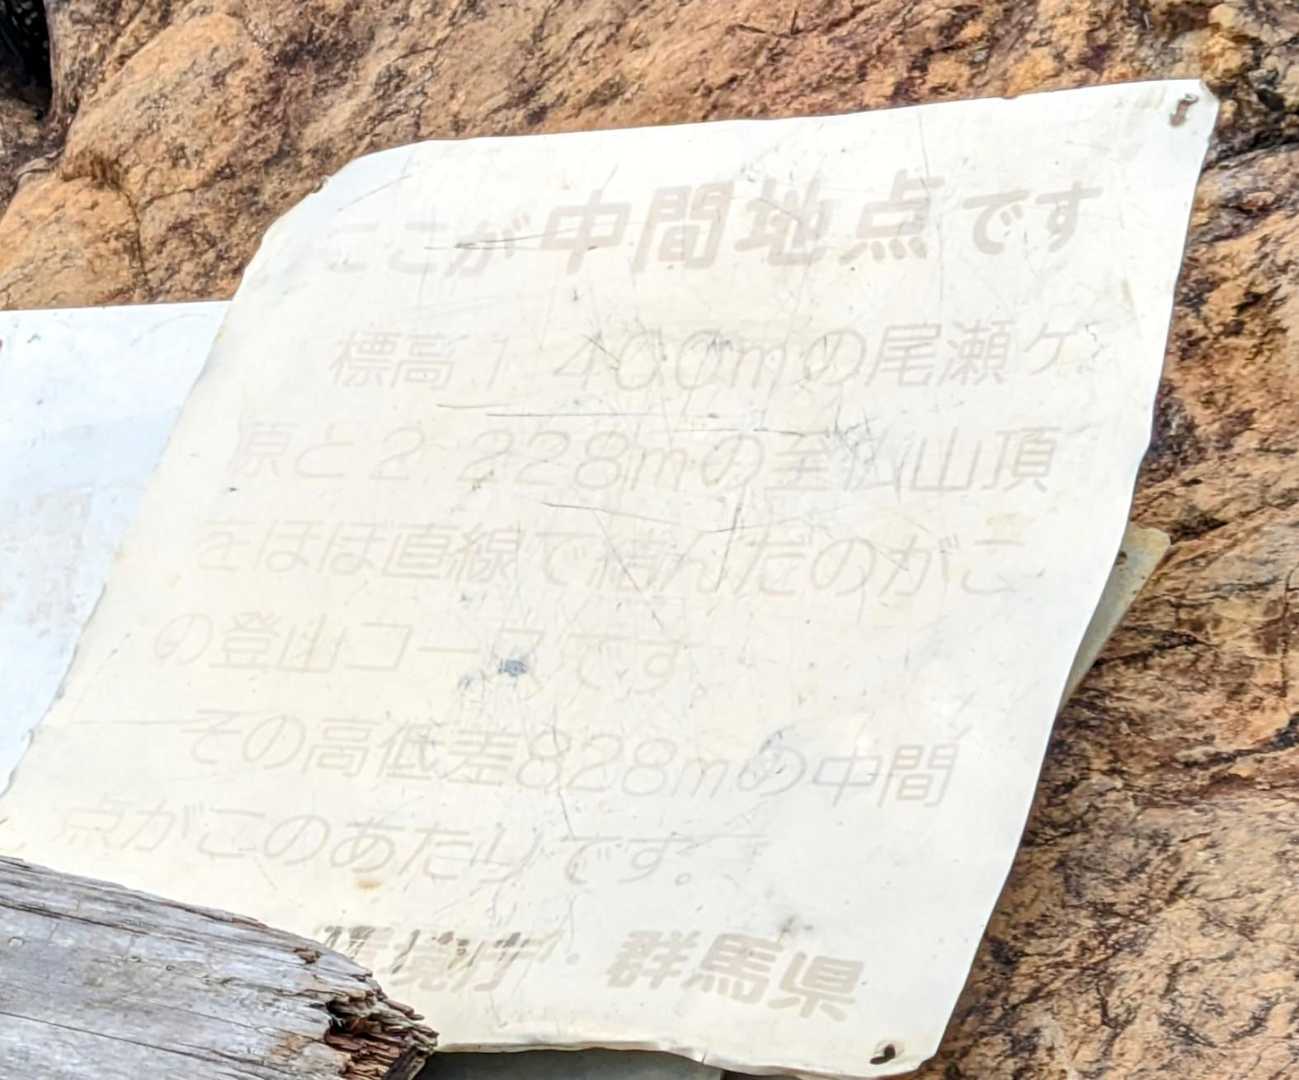 ここが中間地点です
標高1 400mの尾瀬ケ
原と2 228mの至仏山頂
をほぼ直線で結んだのがこ
の登山コースです。
その高低差828mの中間
点がこのあたりです。
環境庁・群馬県